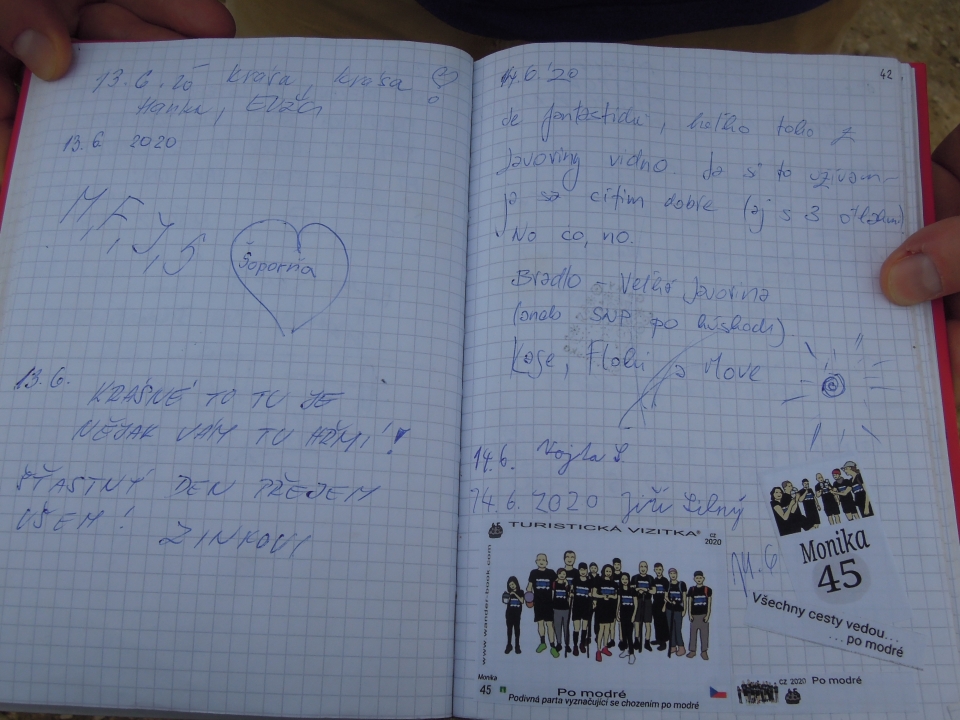 13.6.20 krása, krása
Hanka,
13.6 2020
M, F, J, S
Šoporňa
13.6.
KRÁSNÉ TO TU JE
NĚJAK VÁM TU HŘMÍ!
ŠŤASTNÝ DEN PŘEJEM
VŠEM!
ZINKOVI
42
14.6.'20
Je fantasticky, toho z
Javoriny vidno. Ja si to užívam
ja sa cítim dobre (aj s 3 otlakmi)
No co, no.
Bradlo - Veľká Javorina
(aneb SNP po kúskoch).
Kaše, a
14.6. Vojta S.
14.6.2020 Jiří
TURISTICKÁ VIZITKA®
CZ
2020
www.wander-book.com
Monika
45
Po modré
Podivná parta vyznačující se chozením po modré
14.6
Monika
45
Všechny cesty vedou...
...po modré
CZ 2020 Po modré